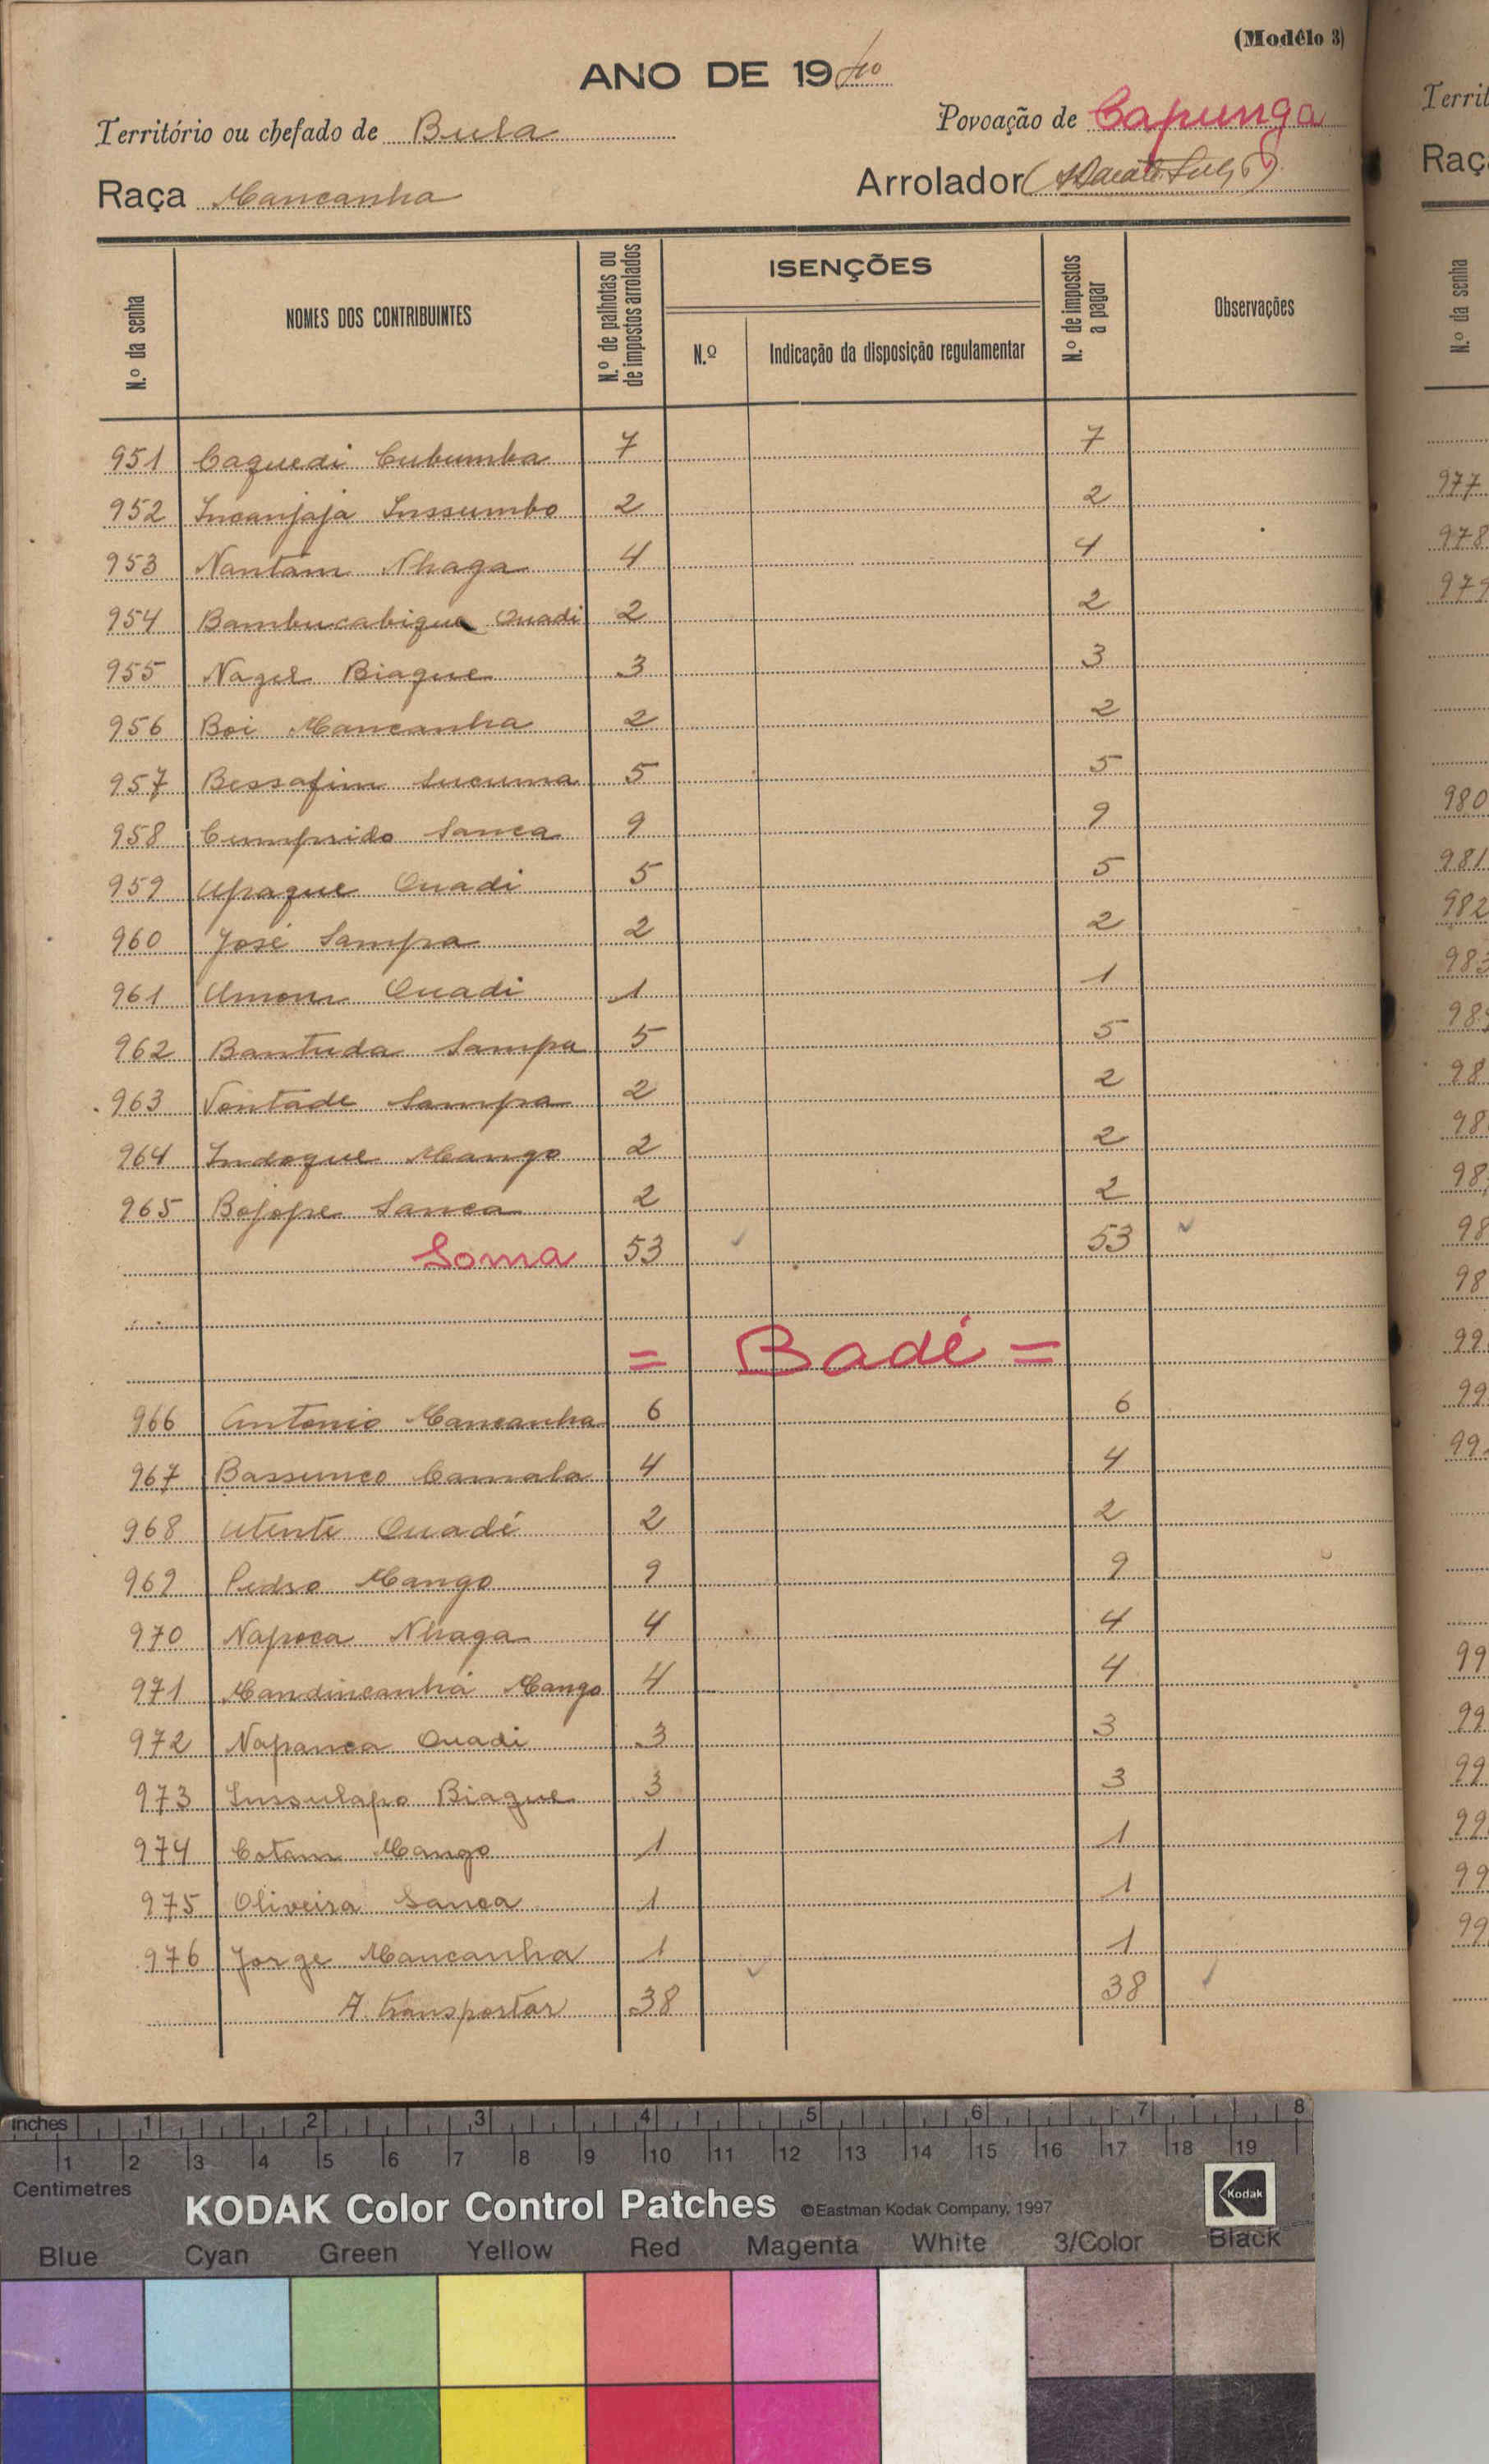 (Modêlo 3)
ANO DE 1940
Território ou chefado de Bula
Povoação de Capunga
Raça Mancanha
Arrolador
N.º da senha
NOMES DOS CONTRIBUINTES
N.º de palhotas ou de impostos arrolados
ISENÇÕES
N.º
Indicação da disposição regulamentar
N.º de impostos a pagar
Observações
951 Caquedi Cubumba 7 7
952 Incanjaja Inssumbo 2 2
953 Nantam Nhaga 4 4
954 Bambucabique Ouadi 2 2
955 Nagel Biague 3 3
956 Boi Mancanha 2 2
957 Bessafim Sucuma 5 5
958 Cumprido Sanca 9 9
959 Apaque Ouadi 5 5
960 José Sampa 2 2
961 Umom Ouadi 1 1
962 Bantuda Sampa 5 5
963 Vontade Sampa 2 2
964 Indoque Mango 2 2
965 Bojope Sanca 2 2
Soma 53 53
= Badé =
966 Antonio Mancanha 6 6
967 Bassunco Camala 4 4
968 Utente Ouadé 2 2
969 Pedro Mango 9 9
970 Napoca Nhaga 4 4
971 Mandincanha Mango 4 4
972 Napanca Ouadi 3 3
973 Inssulapo Biague 3 3
974 Cotam Mango 1 1
975 Oliveira Sanca 1 1
976 Jorge Mancanha 1 1
A transportar 38 38
Territ
Raç
N.º da senha
977
978
979
980
981
982
inches 1 2 3 4 5 6 7 8
1 2 3 4 5 6 7 8 9 10 11 12 13 14 15 16 17 18 19
Centimetres
KODAK Color Control Patches ©Eastman Kodak Company, 1997
Kodak
Blue Cyan Green Yellow Red Magenta White 3/Color Black